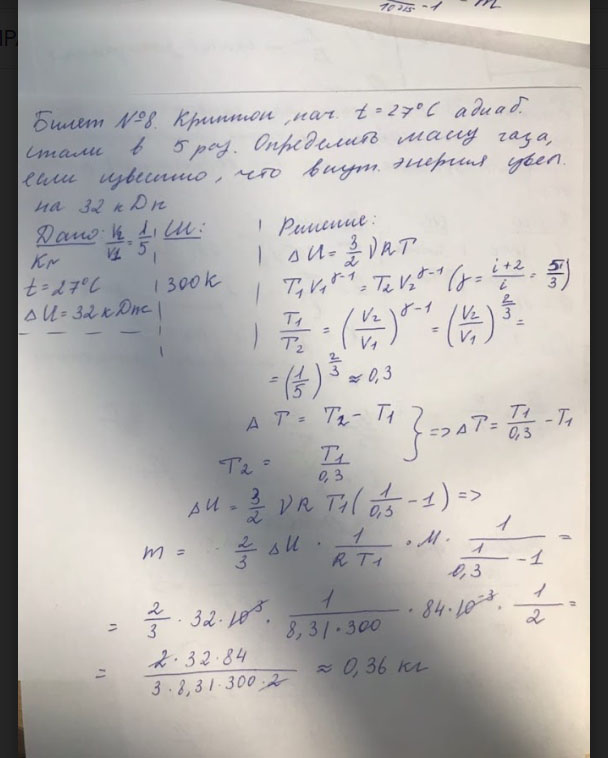 10^2/5 - 1
Билет №8. Криптон, нач. t = 27°C адиаб.
в 5 раз. Определить массу газа,
если известно, что внут. энергия увел.
на 32 кДж
Дано: V2/V1 = 1/5 | СИ: | Решение:
Kr | ΔU = 3/2 νRT
t = 27°C | 300K | T1V1^γ-1 = T2V2^γ-1 (γ = i+2/i = 5/3)
ΔU = 32 кДж | T1/T2 = (V2/V1)^γ-1 = (V2/V1)^2/3 =
= (1/5)^2/3 ≈ 0,3
ΔT = T2 - T1 } => ΔT = T1/0,3 - T1
T2 = T1/0,3
ΔU = 3/2 νR T1(1/0,3 - 1) =>
m = 2/3 ΔU · 1/RT1 · M · 1/(1/0,3 - 1) =
= 2/3 · 32·10^3 · 1/8,31·300 · 84·10^-3 · 1/2 =
= 2·32·84/3·8,31·300·2 ≈ 0,36 кг